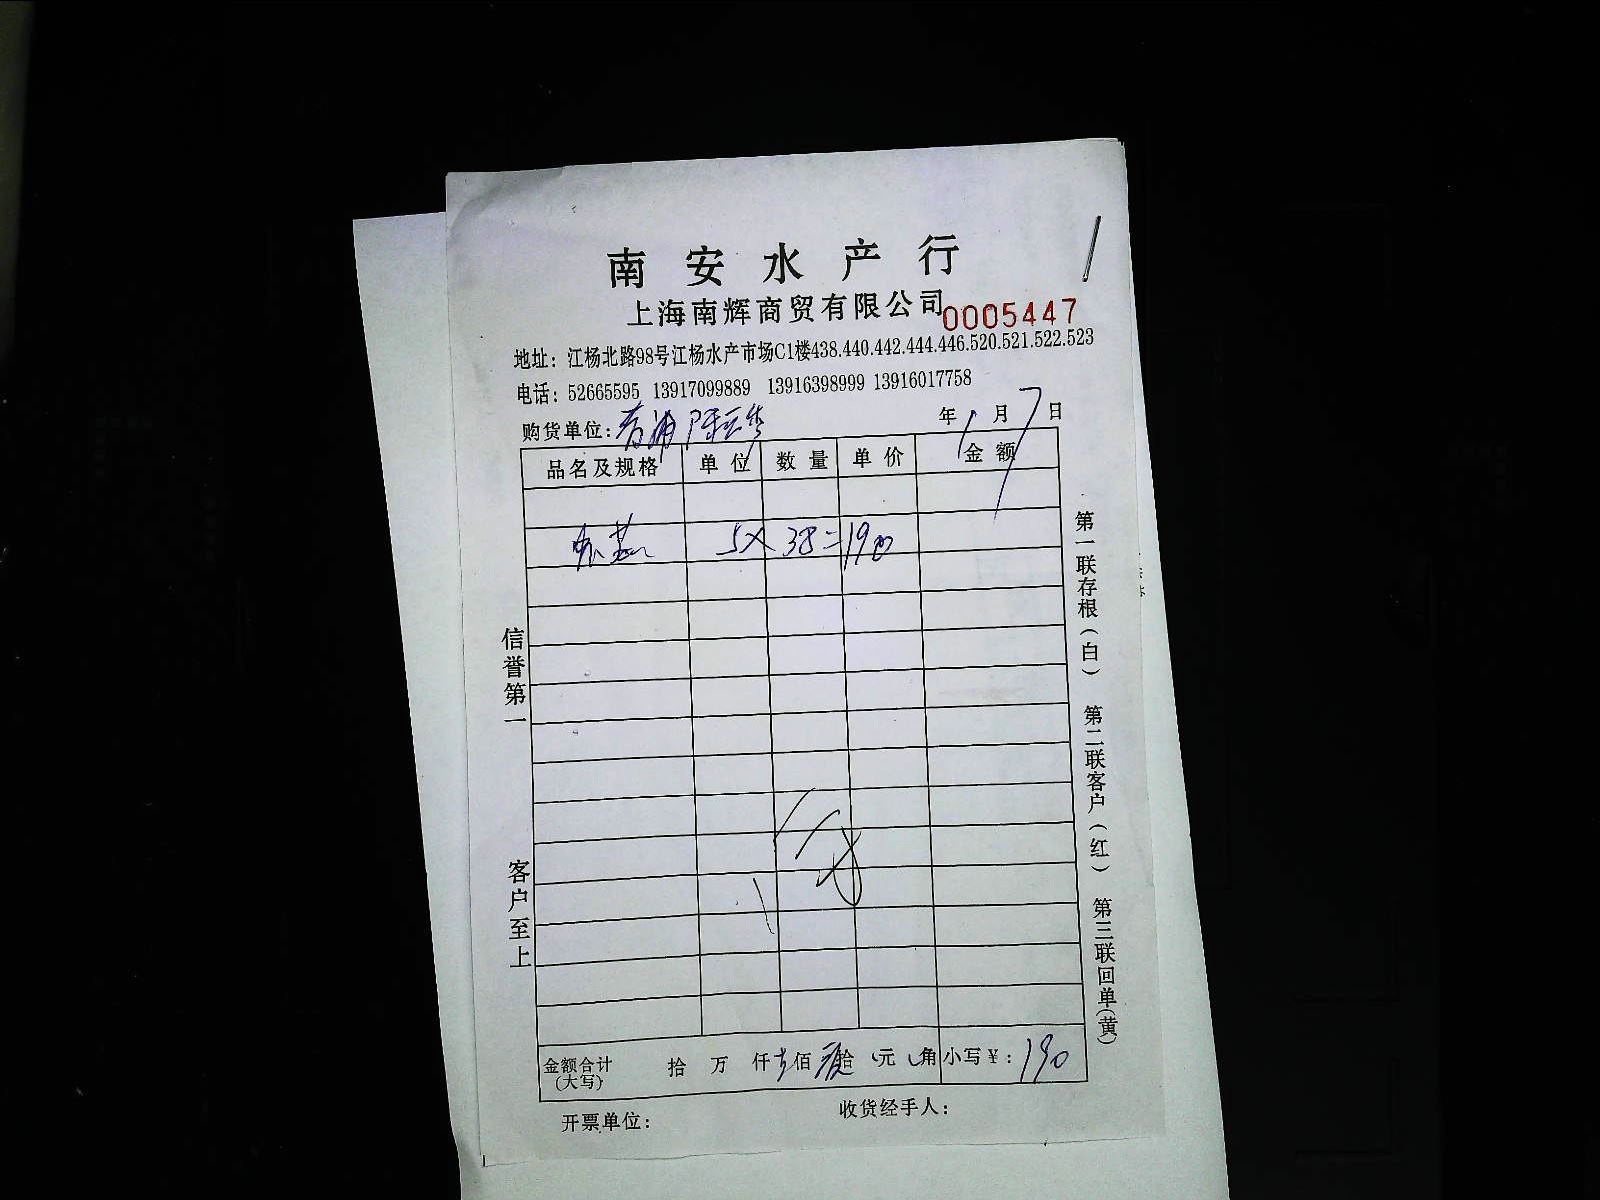 南安水产行
上海南辉商贸有限公司 0005447
地址：江杨北路98号江杨水产市场C1楼438.440.442.444.446.520.521.522.523
电话：52665595 13917099889 13916398999 13916017758
购货单位：青浦 年 1 月 7 日
品名及规格 单位 数量 单价 金额
5×38=190
信誉第一
客户至上
第一联存根（白） 第二联客户（红） 第三联回单（黄）
金额合计（大写） 拾 万 仟 佰 拾 元 角 小写￥：190
开票单位： 收货经手人：